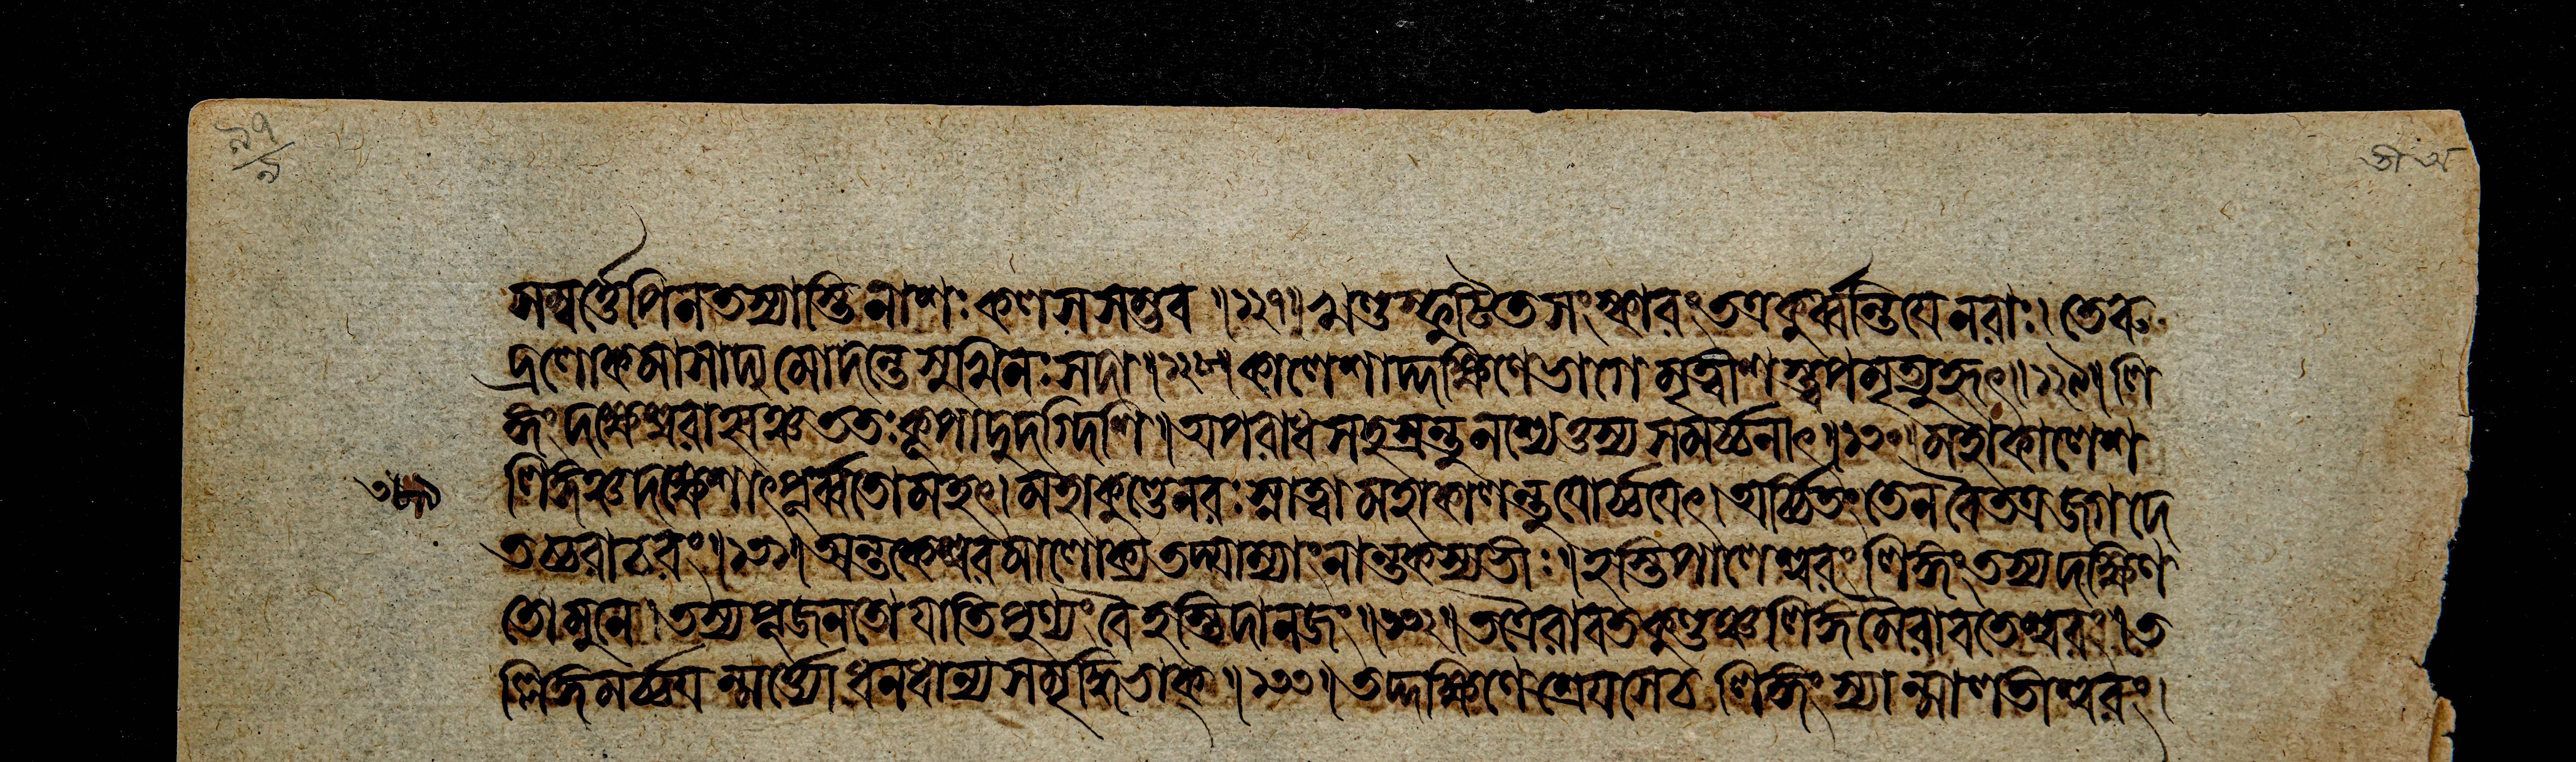 ৯৭
৯
সম্বর্ত্তেপিনতস্যাস্তিনাশঃকলসসম্ভব॥১২৭॥খণ্ডস্ফুটিতসংস্কারংতত্রকুর্ব্বন্তিযেনরাঃ।তেরু
দ্রলোকমাসাদ্যমোদন্তেসুখিনঃসদা॥১২৮॥কালেশাদ্দক্ষিণেভাগেমৃত্য্বীশস্ত্বপমৃত্যুহৃৎ॥১২৯॥লি
ঙ্গংদক্ষেশ্বরাহ্বঞ্চততঃকূপাদুদগ্দিশি॥অপরাধসহস্রন্তুনশ্যেত্তস্যসমর্চ্চনাৎ॥১৩০॥মহাকালেশ
লিঙ্গঞ্চদক্ষেশাৎপূর্ব্বতোমহৎ।মহাকুণ্ডেনরঃস্নাত্বামহাকালন্তুযোর্চ্চযেৎ।অর্চ্চিতংতেনবৈতত্রজগদে
তচ্চরাচরং॥১৩১॥অন্তকেশ্বরমালোক্যতদ্যাম্যাংনান্তকস্যভীঃ॥হস্তিপালেশ্বরংলিঙ্গংতস্যদক্ষিণ
তোমুনে।তস্যপূজনতোযাতিপুণ্যংবৈহস্তিদানজং॥১৩২॥তত্রৈরাবতকুণ্ডঞ্চলিঙ্গমৈরাবতেশ্বরং।ত
ল্লিঙ্গমর্চ্চযন্মর্ত্ত্যোধনধান্যসমৃদ্ধিভাক্॥১৩৩॥তদ্দক্ষিণেশ্রেযসেচলিঙ্গংস্যান্মালতীশ্বরং।